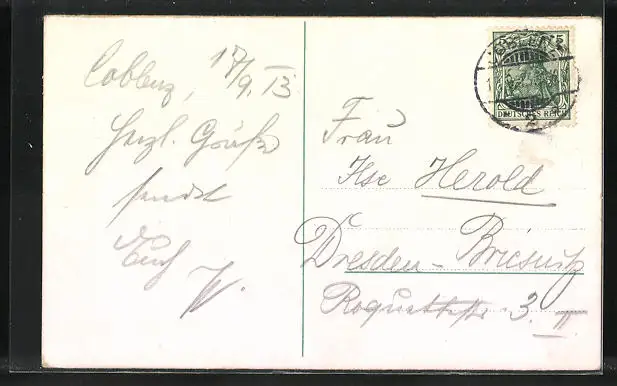 Coblenz, 17/9. 13
Herzl. Grüße
sendet
Euch
W.
COBLENZ
2
5
DEUTSCHES REICH
Frau
Ilse Herold
Dresden-Briesnitz
Roquettestr 3. II.